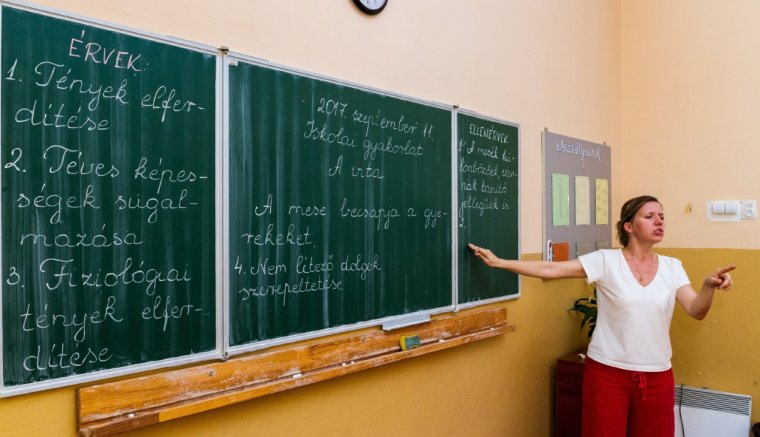 ÉRVEK:
1. Tények elfer-
dítése
2. Téves képes-
ségek sugal-
mazása
3. Fiziológiai
tények elfer-
dítése
2017. szeptember 11.
Iskolai gyakorlat
A vita
A mese becsapja a gye-
rekeket.
4. Nem létező dolgok
szerepeltetése
ELLENÉRVEK
1. A mesék kü-
lönbözőek, van-
nak tanító
jellegűek is.
2.
Osztálysarok